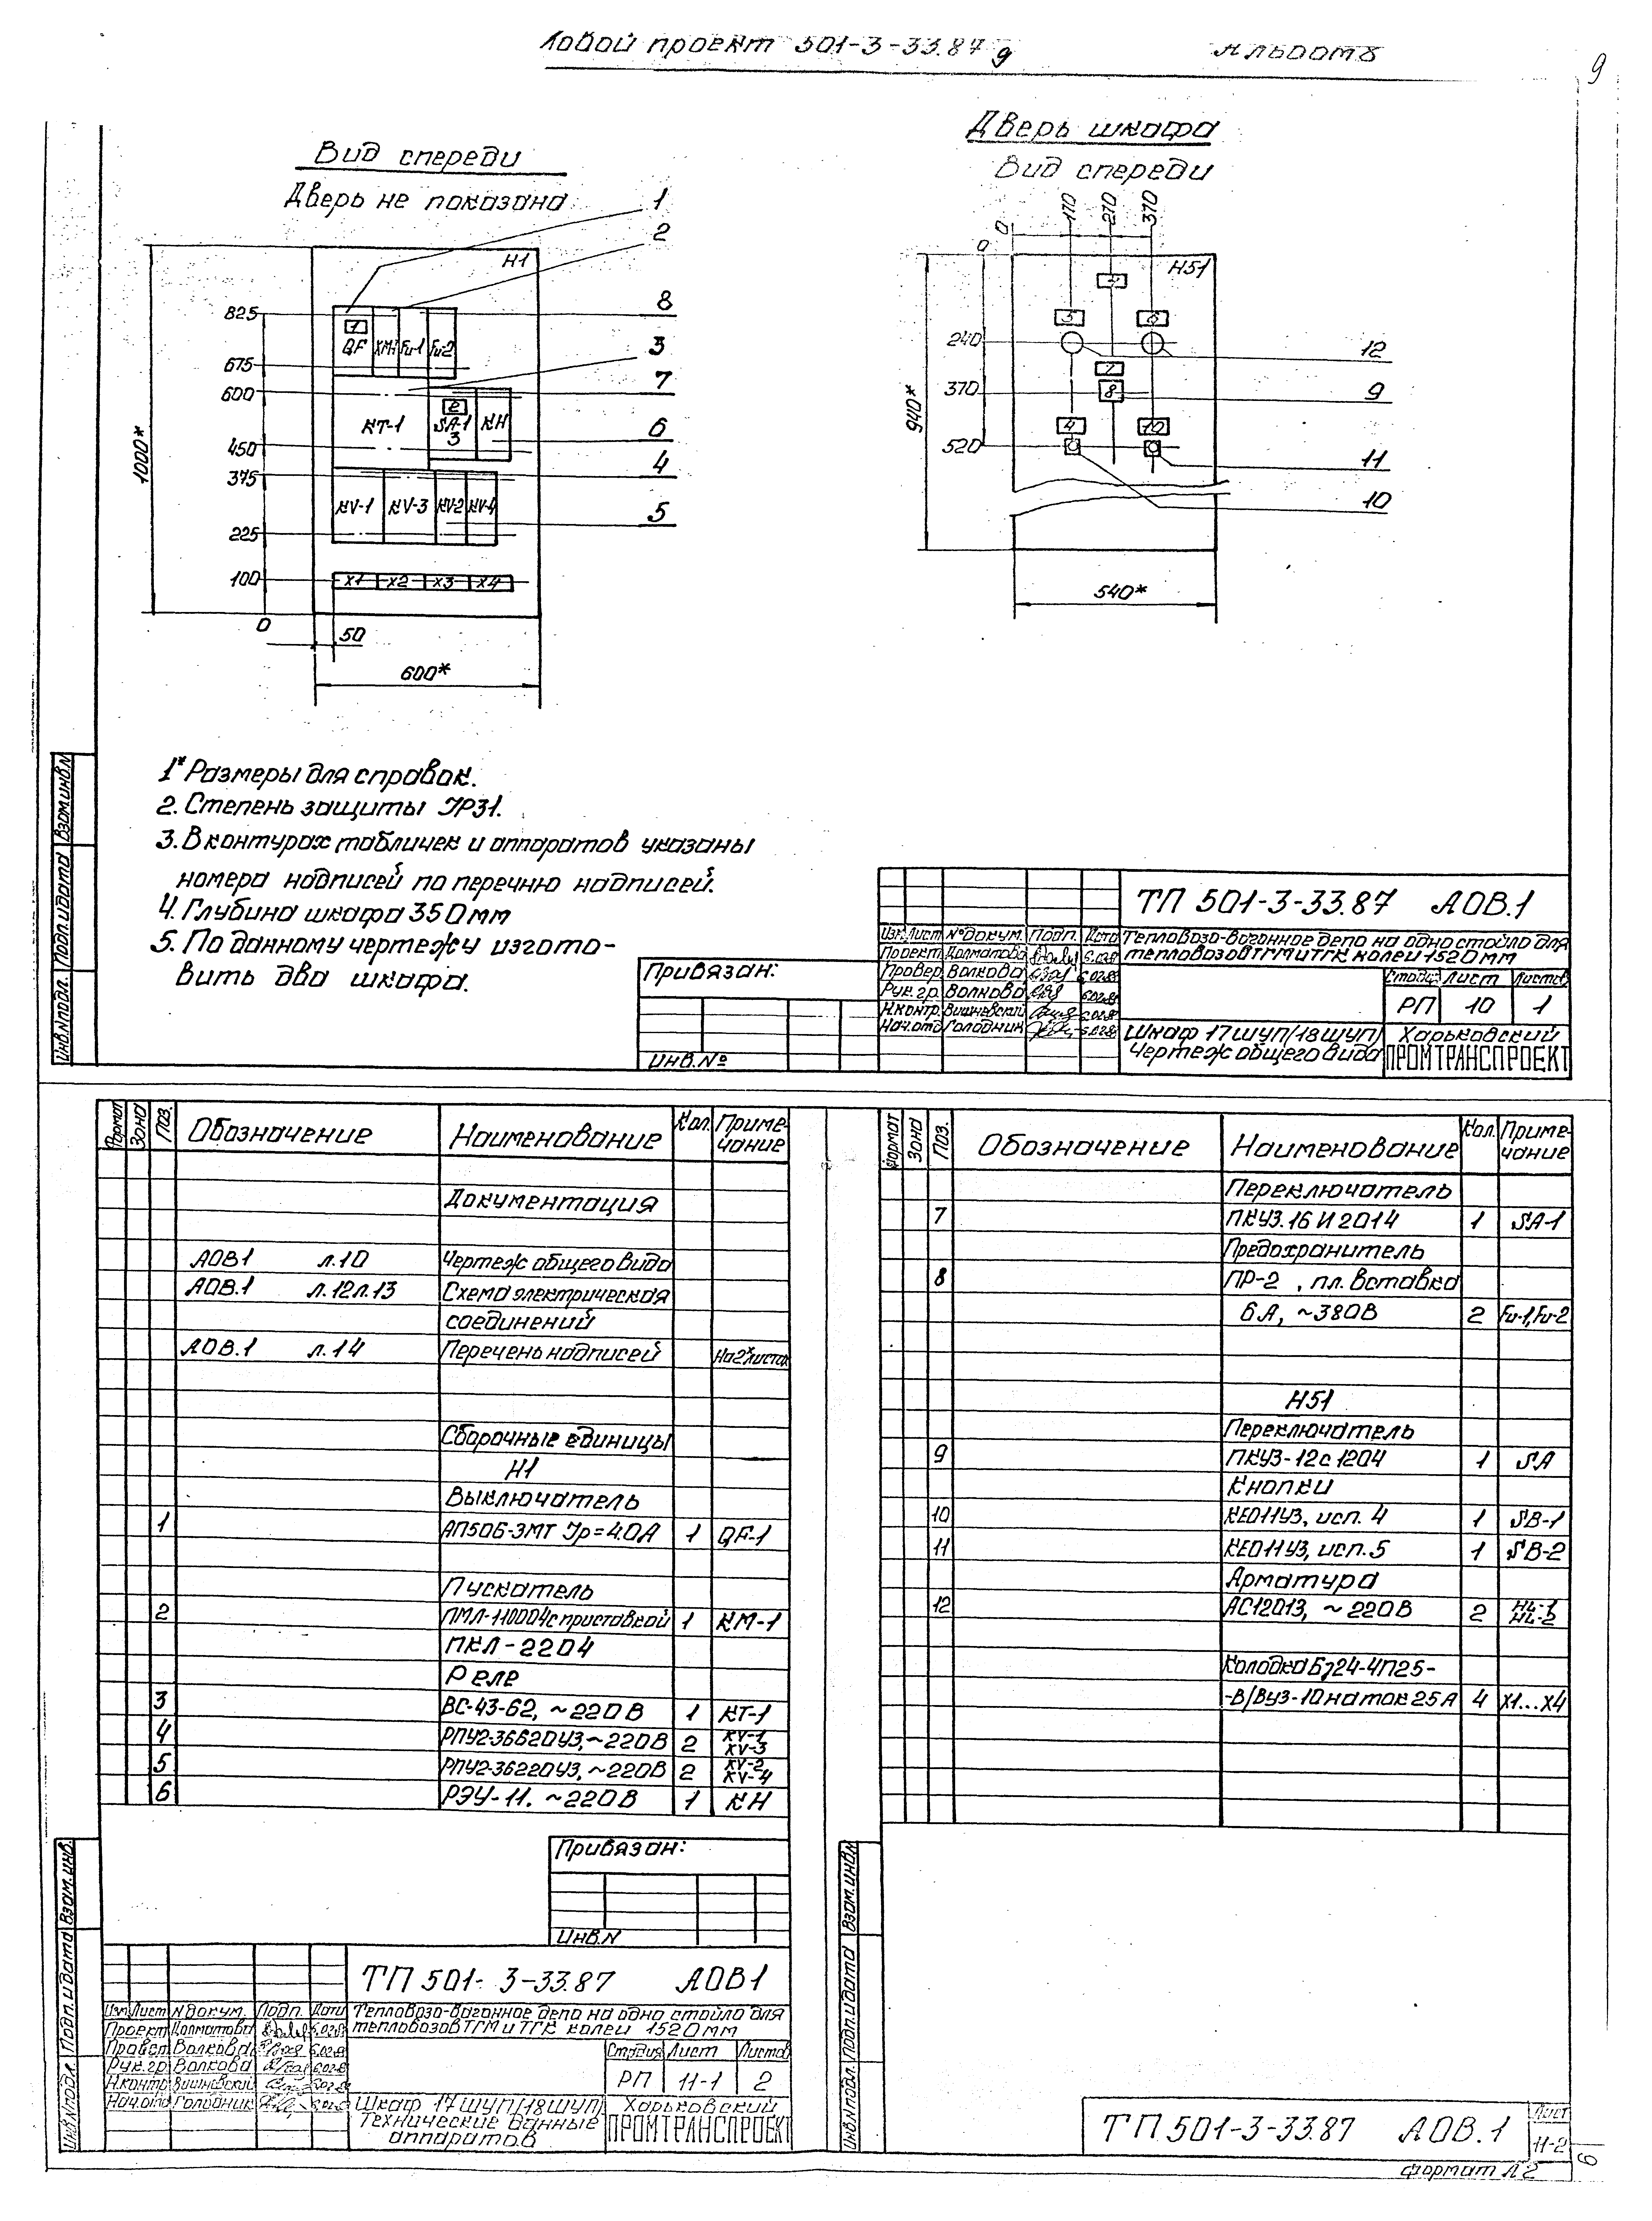 ловой проект 501-3-33.87
Альбом 8
9
9
Вид спереди
Дверь не показана
1
2
8
3
7
6
4
5
Н1
825
675
600
450
375
225
100
0
1000*
1
QF
КМ-1
Fu-1
Fu-2
КТ-1
2
SA-1
3
КН
KV-1
KV-3
KV-2
KV-4
X1
X2
X3
X4
50
600*
Дверь шкафа
Вид спереди
0
170
270
370
0
Н51
240
370
520
940*
540*
6
8
4
10
12
9
11
10
1* Размеры для справок.
2. Степень защиты JP31.
3. В контурах табличек и аппаратов указаны
номера надписей по перечню надписей.
4. Глубина шкафа 350мм
5. По данному чертежу изгото-
вить два шкафа.
Привязан:
Инв.№
ТП 501-3-33.87 АОВ.1
Изм. Лист № докум. Подп. Дата
Проект. Долматова
Провер. Волкова
Рук. гр. Волкова
Н.контр. Вишневский
Нач.отд. Голодник
Тепловозо-вагонное депо на одно стойло для
тепловозов ТГМ и ТГК колеи 1520мм
Стадия Лист Листов
РП 10 1
Шкаф 17ШУП/18ШУП/
Чертеж общего вида
Харьковский
ПРОМТРАНСПРОЕКТ
Инв.N подл. Подп. и дата Взам.инв.N
Формат Зона Поз. Обозначение Наименование Кол. Приме-
чание
Документация
АОВ1 л.10 Чертеж общего вида
АОВ.1 л.12 л.13 Схема электрическая
соединений
АОВ.1 л.14 Перечень надписей На 2х листах
Сборочные единицы
Н1
Выключатель
1 АП50Б-3МТ Jр=4.0А 1 QF-1
Пускатель
2 ПМЛ-110004 с приставкой 1 КМ-1
ПКЛ-2204
Реле
3 ВС-43-62, ~220В 1 КТ-1
4 РПУ2-36620У3, ~220В 2 KV-1
KV-3
5 РПУ2-36220У3, ~220В 2 KV-2
KV-4
6 РЭУ-11. ~220В 1 КН
Привязан:
Инв.N
ТП 501-3-33.87 АОВ1
Изм. Лист N докум. Подп. Дата
Проект. Долматова
Провер. Волкова
Рук. гр. Волкова
Н.контр. Вишневский
Нач.отд. Голодник
Тепловозо-вагонное депо на одно стойло для
тепловозов ТГМ и ТГК колеи 1520мм
Стадия Лист Листов
РП 11-1 2
Шкаф 17ШУП/18ШУП/
Технические данные
аппаратов
Харьковский
ПРОМТРАНСПРОЕКТ
Инв.N подл. Подп. и дата Взам.инв.
Формат Зона Поз. Обозначение Наименование Кол. Приме-
чание
Переключатель
7 ПКУ3.16И2014 1 SA-1
Предохранитель
8 ПР-2, пл. вставка
6А, ~380В 2 Fu-1, Fu-2
Н51
Переключатель
9 ПКУ3-12с1204 1 SA
Кнопки
10 КЕ011У3, исп. 4 1 SB-1
11 КЕ011У3, исп. 5 1 SB-2
Арматура
12 АС12013, ~220В 2 HL-1
HL-2
Колодка Бз24-4П25-
-В/ВУ3-10 на ток 25А 4 X1...X4
Инв.N подл. Подп. и дата Взам.инв.N
ТП 501-3-33.87 АОВ.1
Лист
11-2
формат А2
9